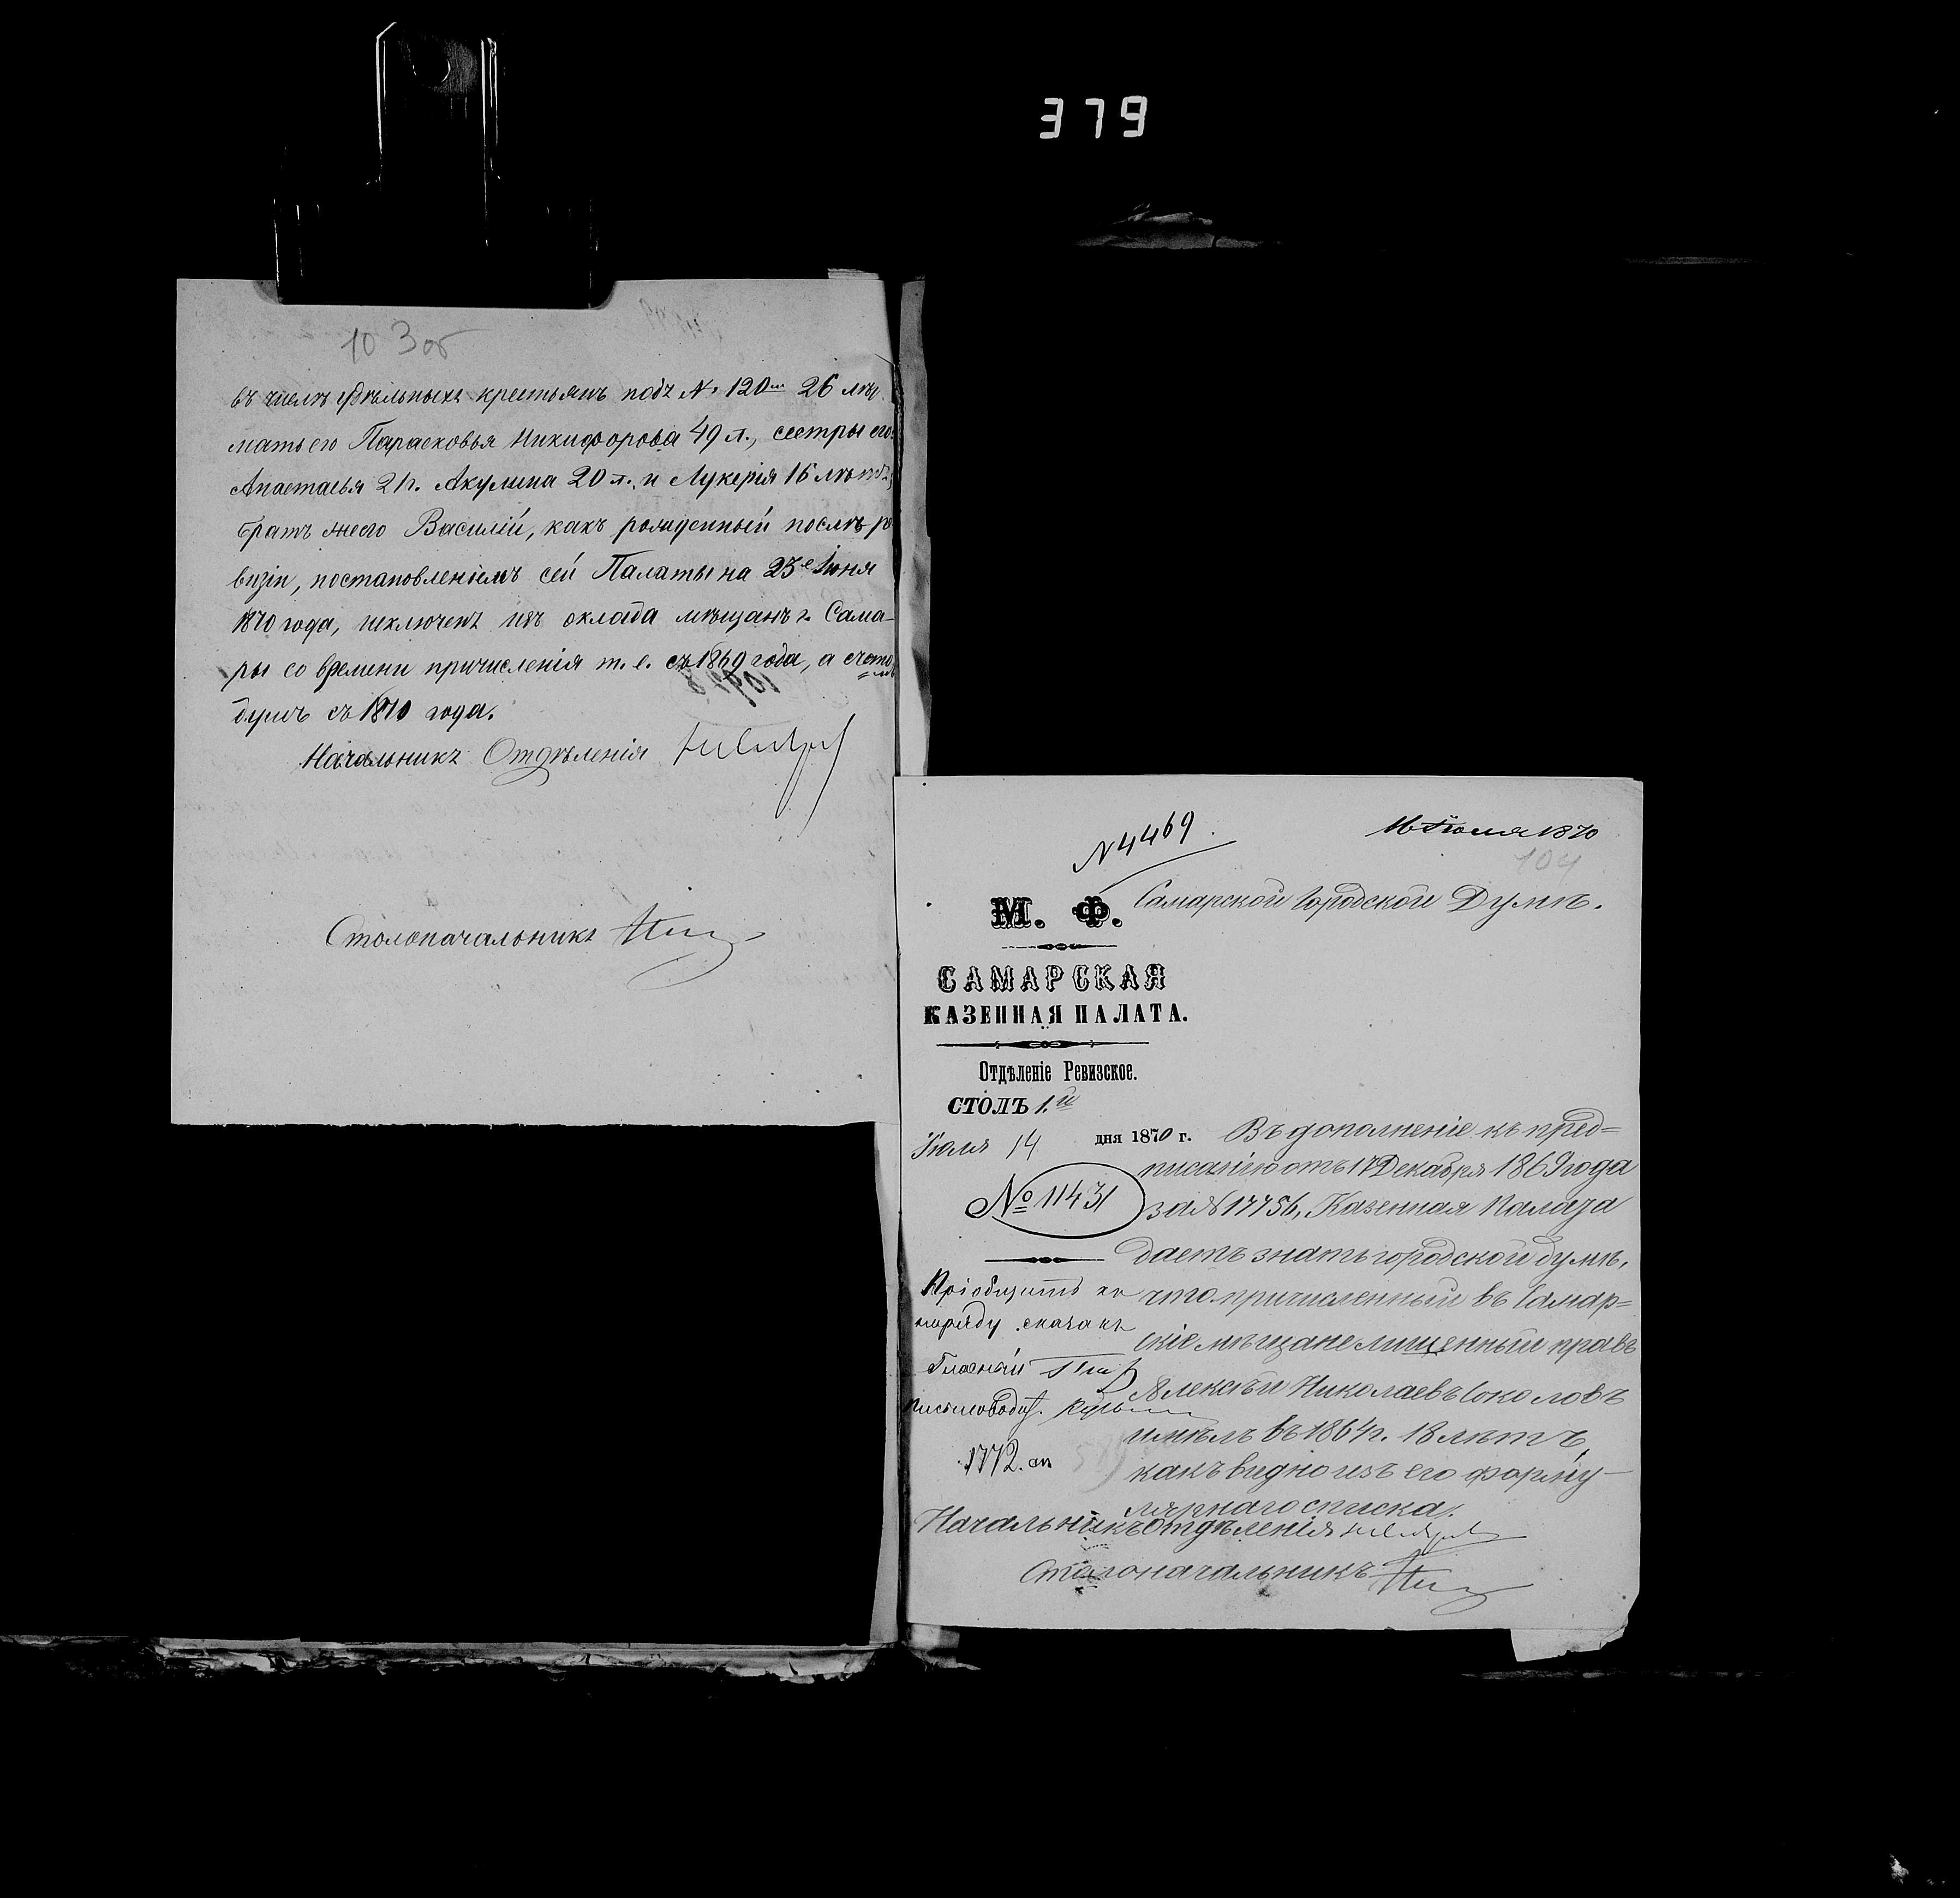 379
103об
въ числѣ удѣльныхъ крестьянъ подъ № 120 26 лѣт.
мать его Парасковья Никифорова 49 л., сестры его:
Анастасья 21 г. Акулина 20 л. и Лукерія 16 лѣтъ,
братъ же его Василій, какъ рожденный послѣ ре
визіи, постановленіемъ сей Палаты на 23е Іюня
1870 года, исключенъ изъ оклада мѣщанъ г. Сама-
ры со времени причисленія т. е. съ 1869 года, а счетомъ
будетъ съ 1870 года.
Начальникъ Отдѣленія
Столоначальникъ
№ 4469.
16 Іюля 1870
104
М. Ф.
Самарской Городской Думѣ.
САМАРСКАЯ
КАЗЕННАЯ ПАЛАТА.
Отдѣленіе Ревизское.
СТОЛЪ 1.й
Іюля 14 дня 1870 г.
№ 11431
Въ дополненіе къ пред=
писанію отъ 17 Декабря 1869 года
за № 17756, Казенная Палата
даетъ знать городской думѣ,
что причисленный въ Самар=
скіе мѣщане лишенный правъ
Алексѣй Николаевъ Соколовъ
имѣлъ въ 1864 г. 18 лѣтъ,
какъ видно изъ его форму-
лярнаго списка.
Пріобщить къ
наряду
Гласный
Письмовод.
1772.
Начальникъ Отдѣленія
Столоначальникъ